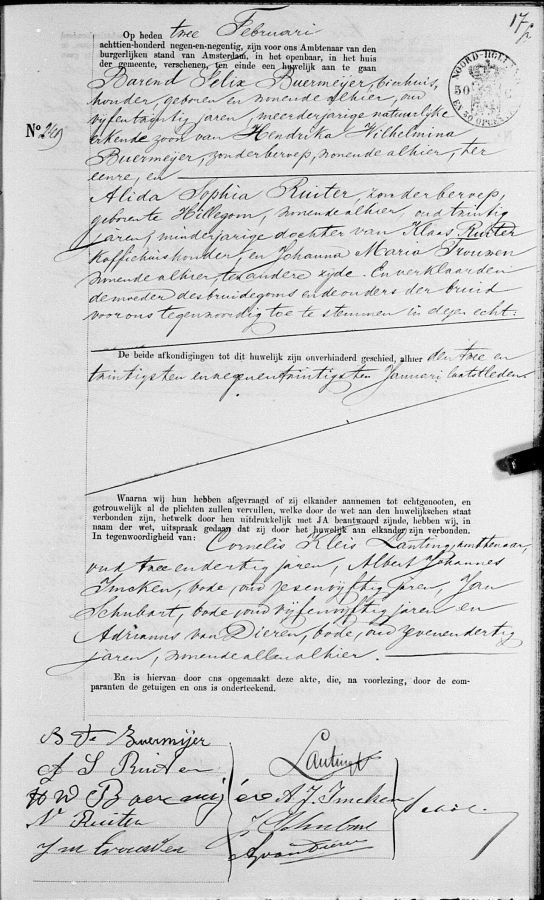 17
Op heden twee Februari
achttien-honderd negen-en-negentig, zijn voor ons Ambtenaar van den
burgerlijken stand van Amsterdam, in het openbaar, in het huis
der gemeente, verschenen, ten einde een huwelijk aan te gaan
Barend Felix Buermeijer, bierhuis,
houder, geboren en wonende alhier, oud
vijfentwintig jaren, meerderjarige natuurlijke
erkende zoon van Hendrika Wilhelmina
Buermeijer, zonder beroep, wonende alhier, ter
eenre, en
Alida Sophia Ruiter, zonder beroep,
geboren te Hillegom, wonende alhier, oud twintig
jaren, minderjarige dochter van Klaas Ruiter
koffiehuishouder, en Johanna Maria Trouwen
wonende alhier, ter andere zijde. En verklaarden
de moeder des bruidegoms en de ouders der bruid
voor ons tegenwoordig toe te stemmen in dezen echt.
No 249
NOORD-HOLL
50
EN 50 OPCEN
De beide afkondigingen tot dit huwelijk zijn onverhinderd geschied, alhier den twee en
twintigsten en negenentwintigsten Januari laatstleden.
Waarna wij hun hebben afgevraagd of zij elkander aannemen tot echtgenooten, en
getrouwelijk al de plichten zullen vervullen, welke door de wet aan den huwelijkschen staat
verbonden zijn, hetwelk door hen uitdrukkelijk met JA beantwoord zijnde, hebben wij, in
naam der wet, uitspraak gedaan dat zij door het huwelijk aan elkander zijn verbonden.
In tegenwoordigheid van: Cornelis Kleis Lanting, ambtenaar,
oud tweeendertig jaren, Albert Johannes
Imcken, bode, oud zesenvijftig jaren, Jan
Schubart, bode, oud vijfenvijftig jaren en
Adrianus van Dieren, bode, oud zevenendertig
jaren, wonende allen alhier.
En is hiervan door ons opgemaakt deze akte, die, na voorlezing, door de com-
paranten de getuigen en ons is onderteekend.
B F Buermijer
A S Ruiter
H W Boermeijer
K Ruiter
J M Trouwen
Lanting
A. J. Imcken
J Schubart
A van Dieren